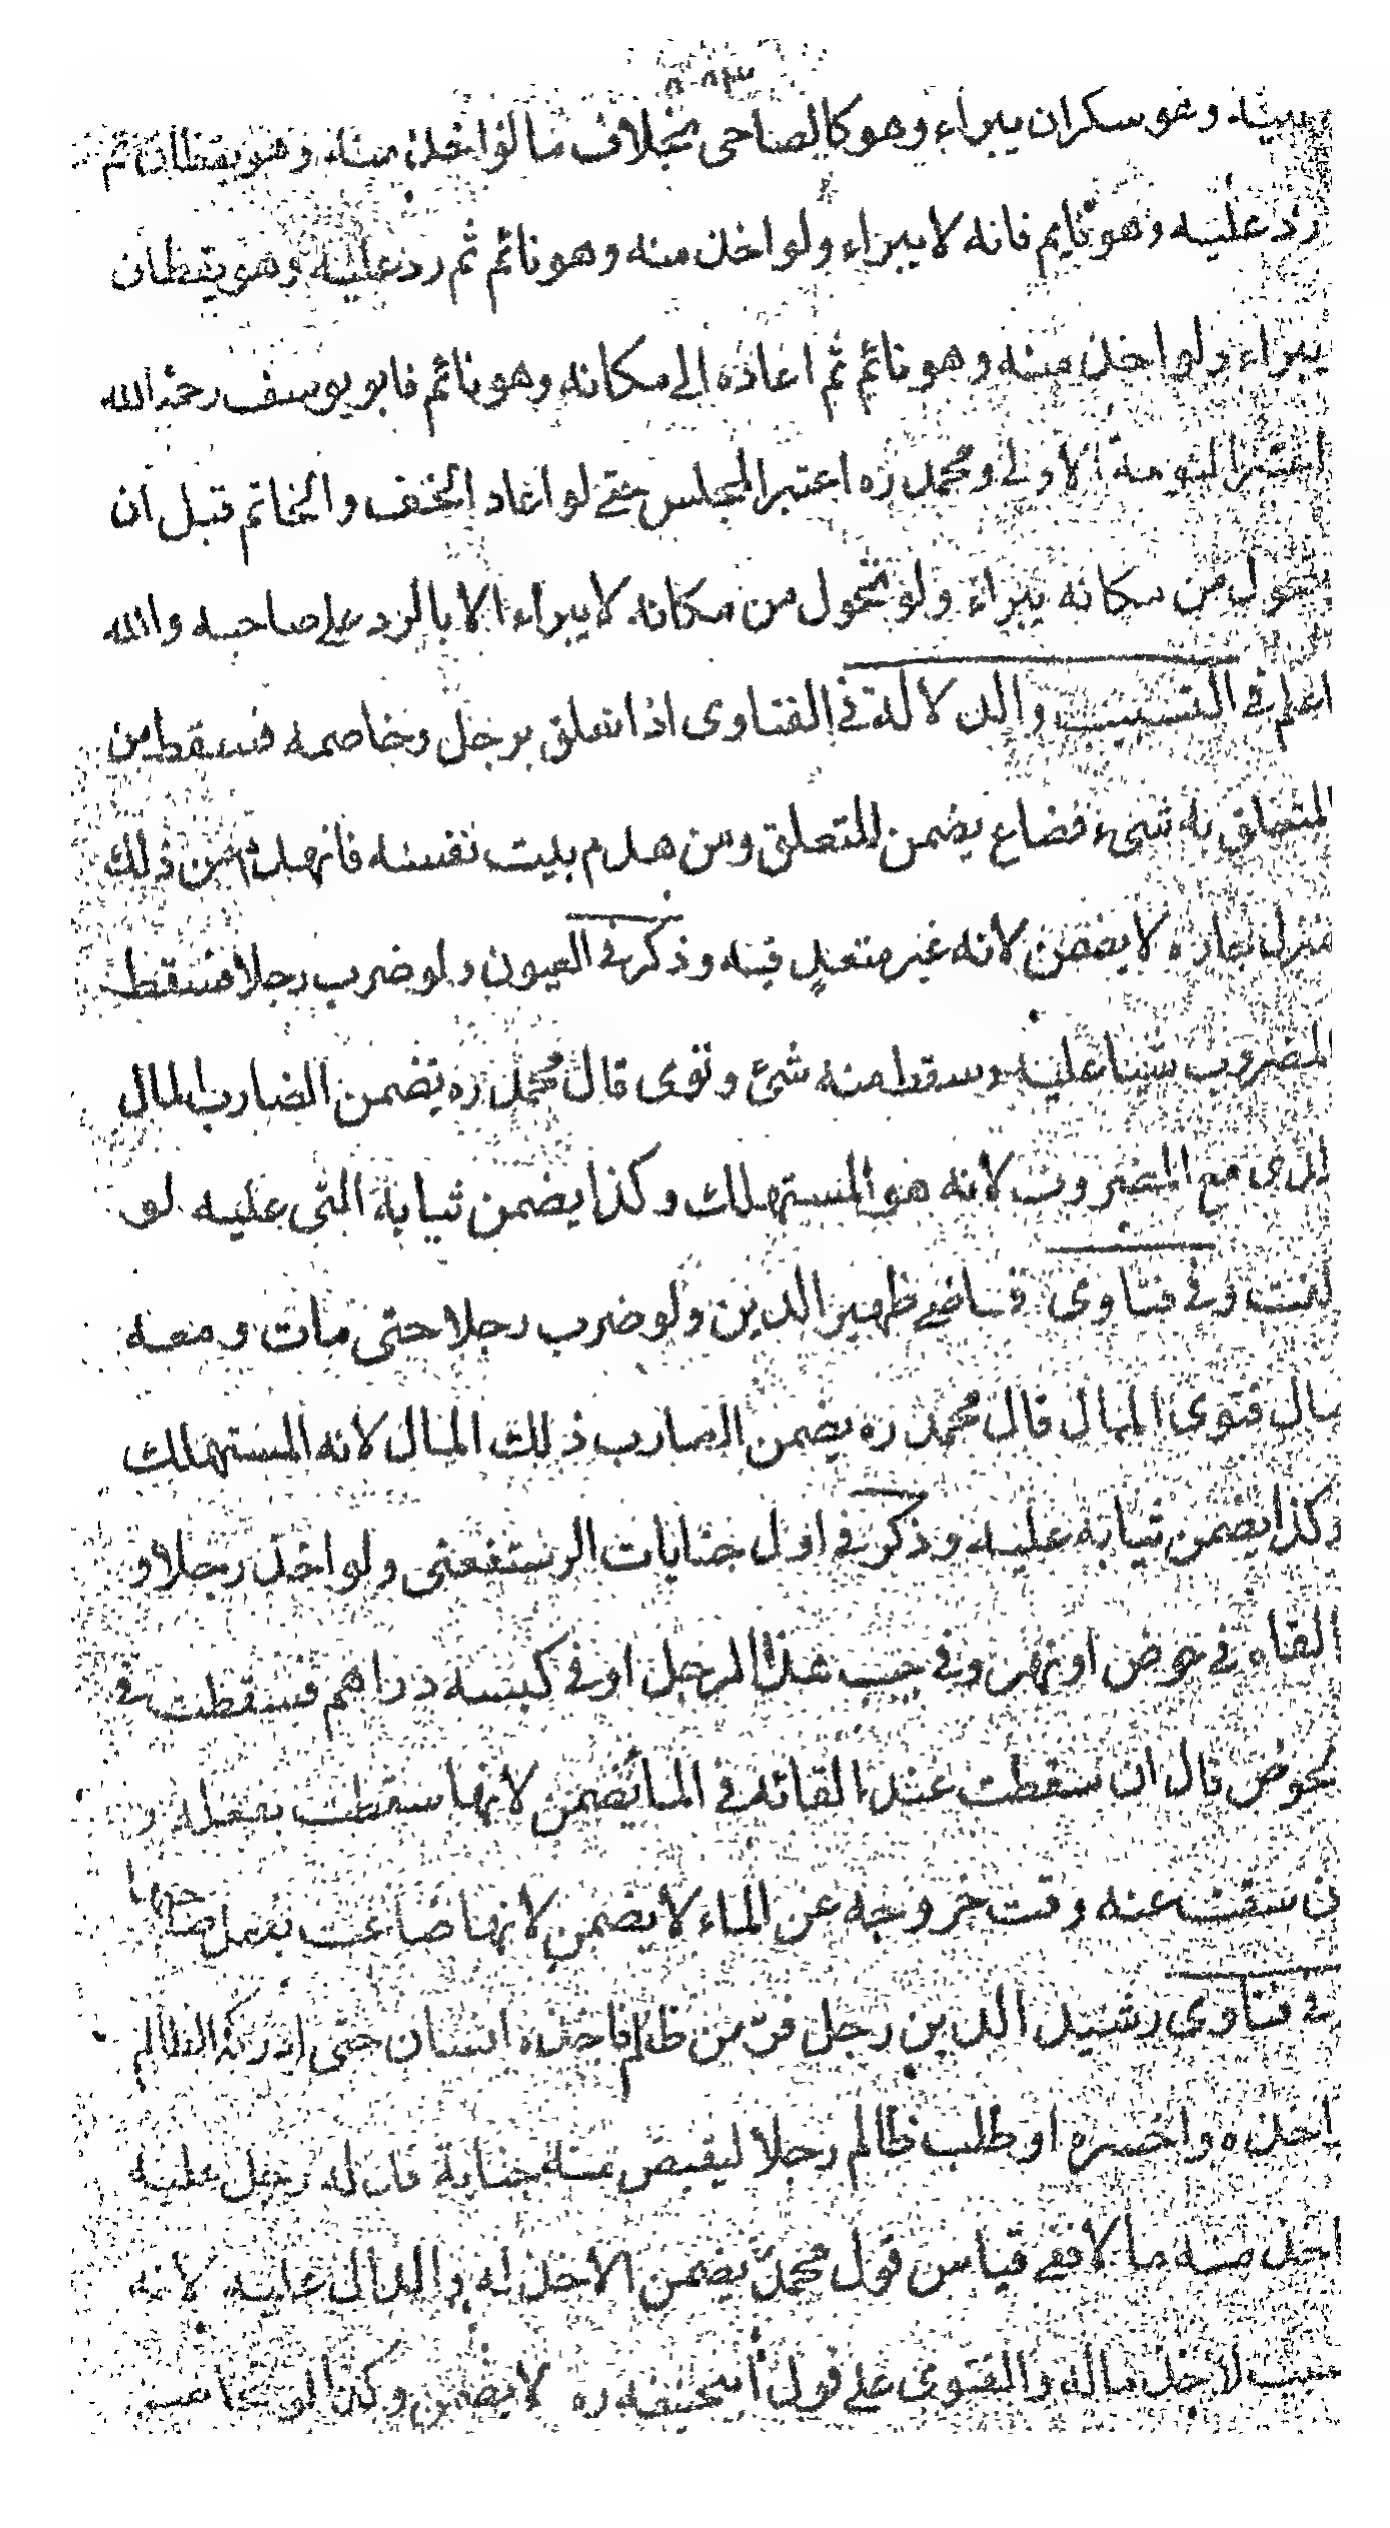 وهو سكران يبراء وهو كالصاحى بخلاف ما لو اخذ منه وهو يقظان ثم
رد عليه وهو نايم فانه لا يبراء ولو اخذ منه وهو نائم ثم رد عليه وهو يقظان
يبراء ولو اخذ منه وهو نائم ثم اعاده الى مكانه وهو نائم فابو يوسف رحمه الله
اعتبر النومة الاولى ومحمد ره اعتبر المجلس حتى لو اعاد الخف والخاتم قبل ان
من مكانه يبراء ولو تحول من مكانه لا يبراء الا بالرد على صاحبه والله
اعلم فى التسبيب والدلالة فى الفتاوى اذا تعلق برجل وخاصمه فسقط من
المتعلق به شىء فضاع يضمن المتعلق ومن هدم بيت نفسه فانهدم من ذلك
منزل جاره لا يضمن لانه غير متعد فيه وذكر فى العيون ولو ضرب رجلا فسقط
المضروب عليه وسقط منه شئ وتوى قال محمد ره يضمن الضارب المال
الذى مع المضروب لانه هو المستهلك وكذا يضمن ثيابه التى عليه لو
وفى فتاوى قاضى ظهير الدين ولو ضرب رجلا حتى مات ومعه
مال فتوى المال قال محمد ره يضمن الضارب ذلك المال لانه المستهلك
وكذا يضمن ثيابه عليه وذكر فى اول جنايات الرستغفنى ولو اخذ رجلا و
القاه فى حوض او نهر وفى جيب هذا الرجل او فى كيسه دراهم فسقطت فى
الحوض قال ان سقطت عند القائه فى الما يضمن لانها سقطت بفعله و
ان سقطت عنه وقت خروجه عن الماء لا يضمن لانها ضاعت بفعل صاحبها
فى فتاوى رشيد الدين رجل فر من ظالم فاخذه انسان حتى ادركه الظالم
اخذه واخسره او طلب ظالم رجلا ليقبض منه جناية فدله رجل عليه
اخذ منه مالا ففى قياس قول محمد يضمن الاخذ له والدال عليه لانه
لاخذ ماله والفتوى على قول ابيحنيفه ره لا يضمن وكذا لو